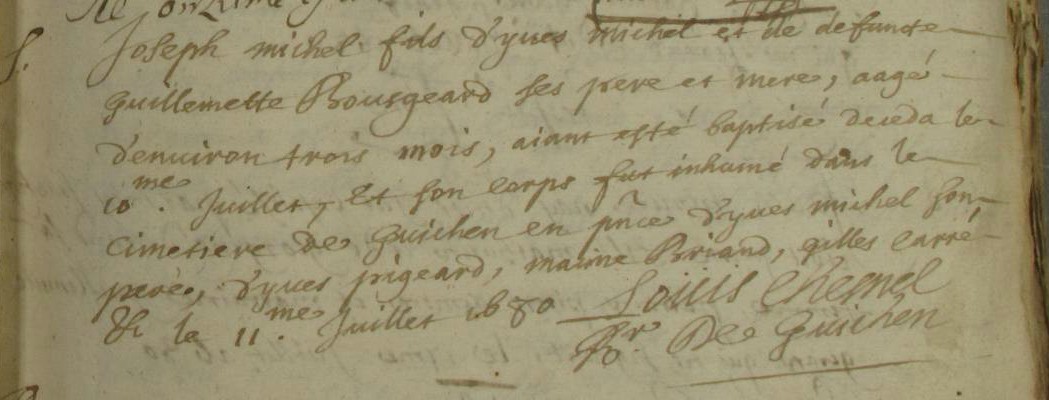 S.
Joseph michel fils d'yves michel et de defuncte
guillemette Bourgeard ses pere et mere, aagé
d'environ trois mois, aiant esté baptisé deceda le
10.me Juillet, Et son corps fut inhumé dans le
cimetiere de guichen en pn̄ce d'yves michel son
pere, d'yves pigeard, maime Briand, gilles Carré
& le 11me Juillet 1680 Louis Chesnel
Pbr De Guichen